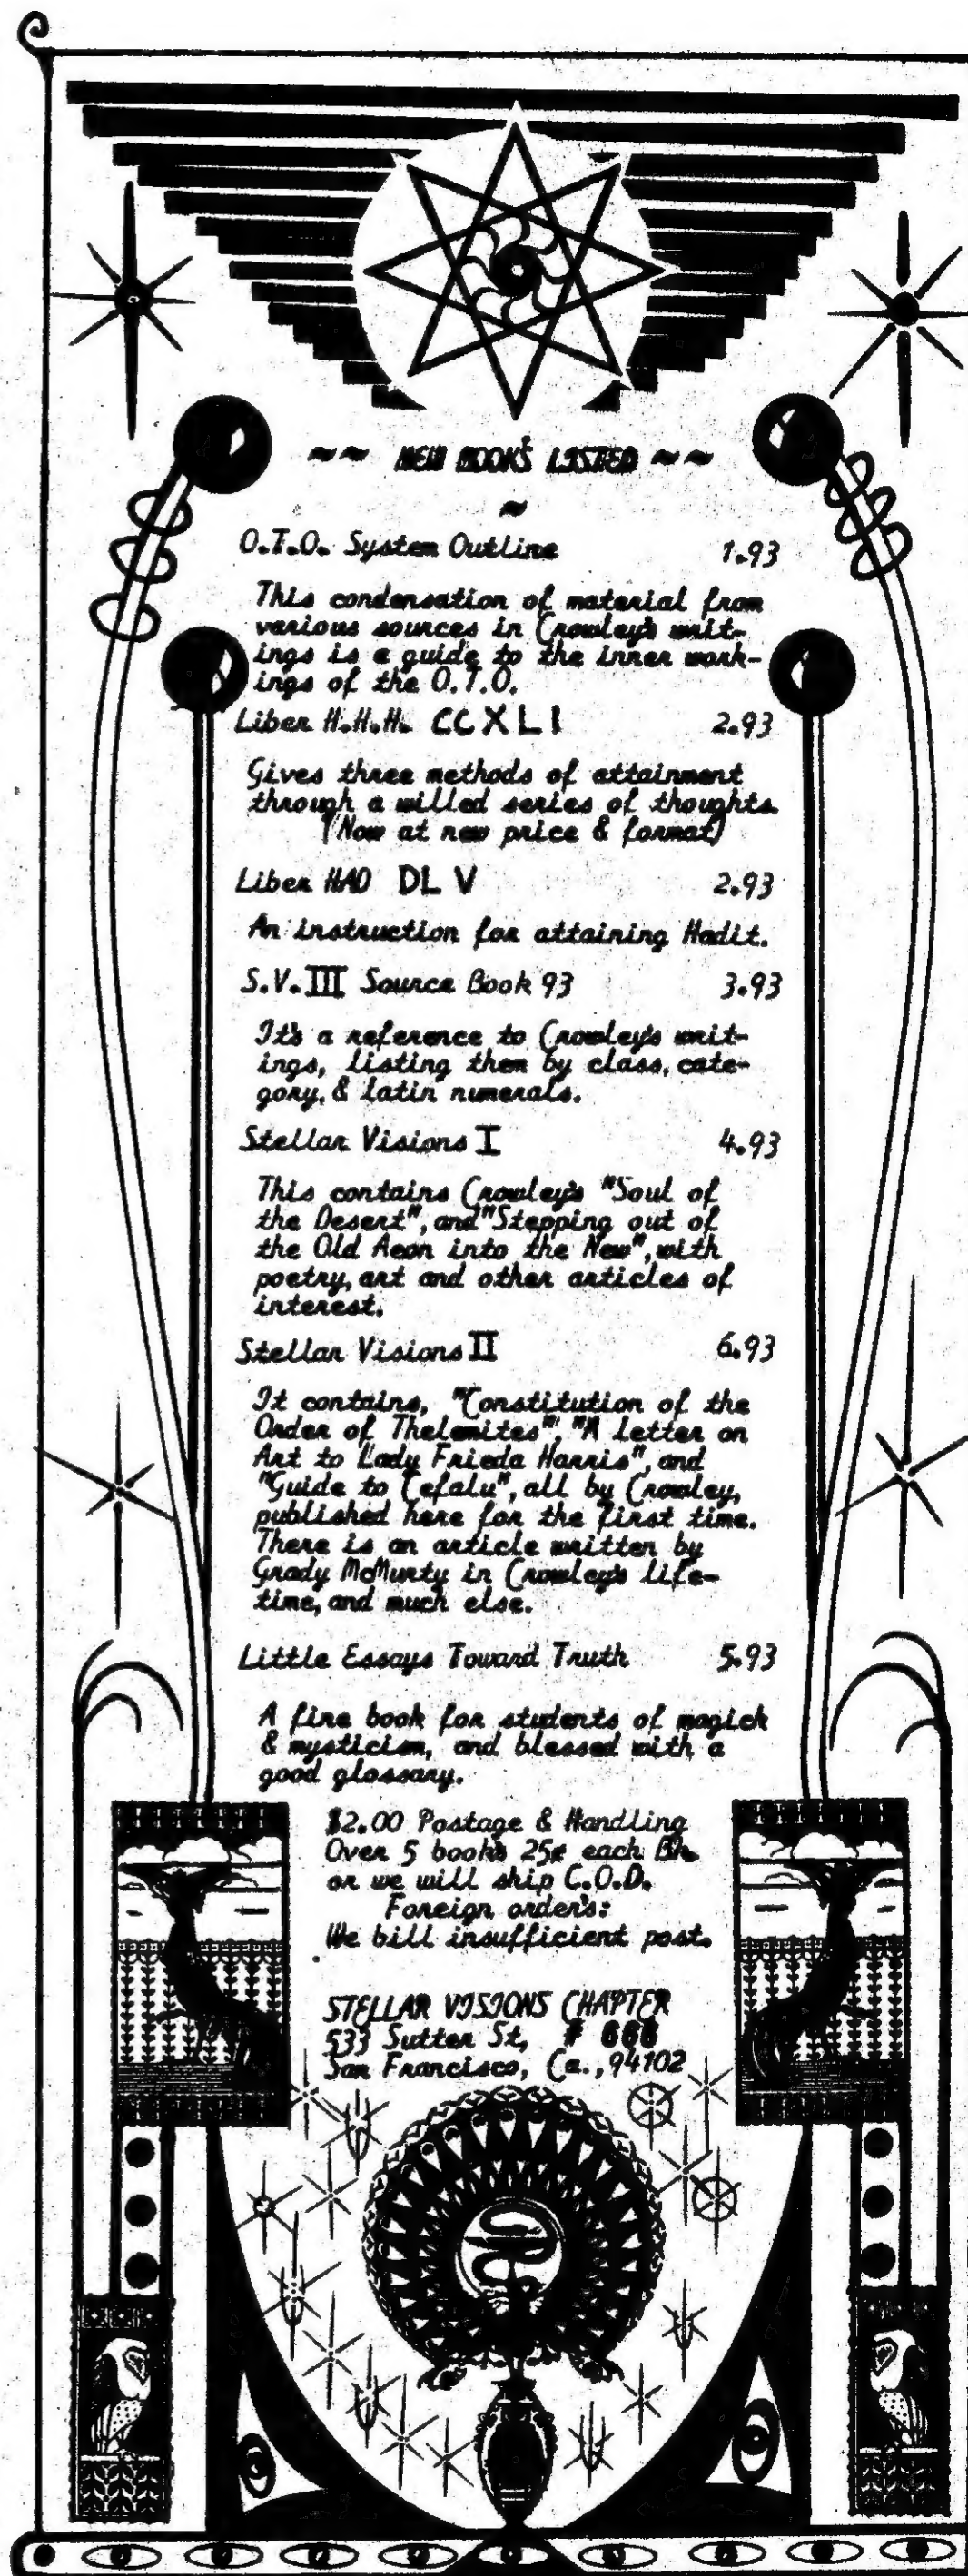 ~~ NEW BOOK'S LISTED ~~
~
O.T.O. System Outline 1.93
This condensation of material from
various sources in Crowley's writ-
ings is a guide to the inner work-
ings of the O.T.O.
Liber H.H.H. CCXLI 2.93
Gives three methods of attainment
through a willed series of thoughts.
(Now at new price & format)
Liber HAD DLV 2.93
An instruction for attaining Hadit.
S.V. III Source Book 93 3.93
It's a reference to Crowley's writ-
ings, listing them by class, cate-
gory, & latin numerals.
Stellar Visions I 4.93
This contains Crowley's "Soul of
the Desert", and "Stepping out of
the Old Aeon into the New", with
poetry, art and other articles of
interest.
Stellar Visions II 6.93
It contains, "Constitution of the
Order of Thelemites", "A Letter on
Art to Lady Frieda Harris", and
"Guide to Cefalu", all by Crowley,
published here for the first time.
There is an article written by
Grady McMurty in Crowley's life-
time, and much else.
Little Essays Toward Truth 5.93
A fine book for students of magick
& mysticism, and blessed with a
good glossary.
$2.00 Postage & Handling
Over 5 book's 25¢ each Bk.
or we will ship C.O.D.
Foreign order's:
We bill insufficient post.
STELLAR VISIONS CHAPTER
533 Sutter St, # 666
San Francisco, Ca., 94102